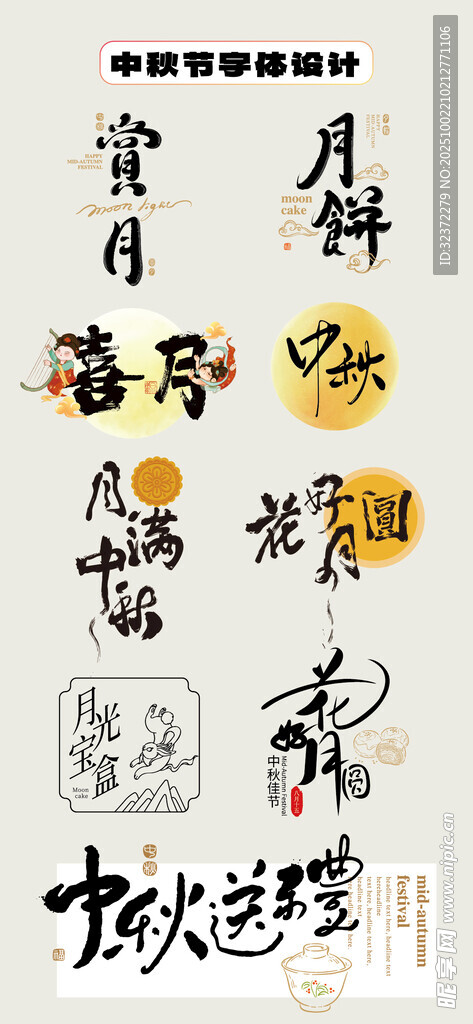 中秋节字体设计
ID:32372279 NO:20251002210212771106
中秋
HAPPY
MID-AUTUMN
FESTIVAL
賞月
moon light
月餅
HAPPY
MID-AUTUMN
FESTIVAL
moon
cake
喜月
中秋
月满
中秋
花好月圓
月光
宝盒
Moon
cake
花好月圆
中秋佳节
Mid-Autumn Festival
八月十五
中秋送禮
mid-autumn
festival
headline text here,
hereheadline
text here, headline
headline text here.
text here, headline
here headline here.
昵享网 www.nipic.cn